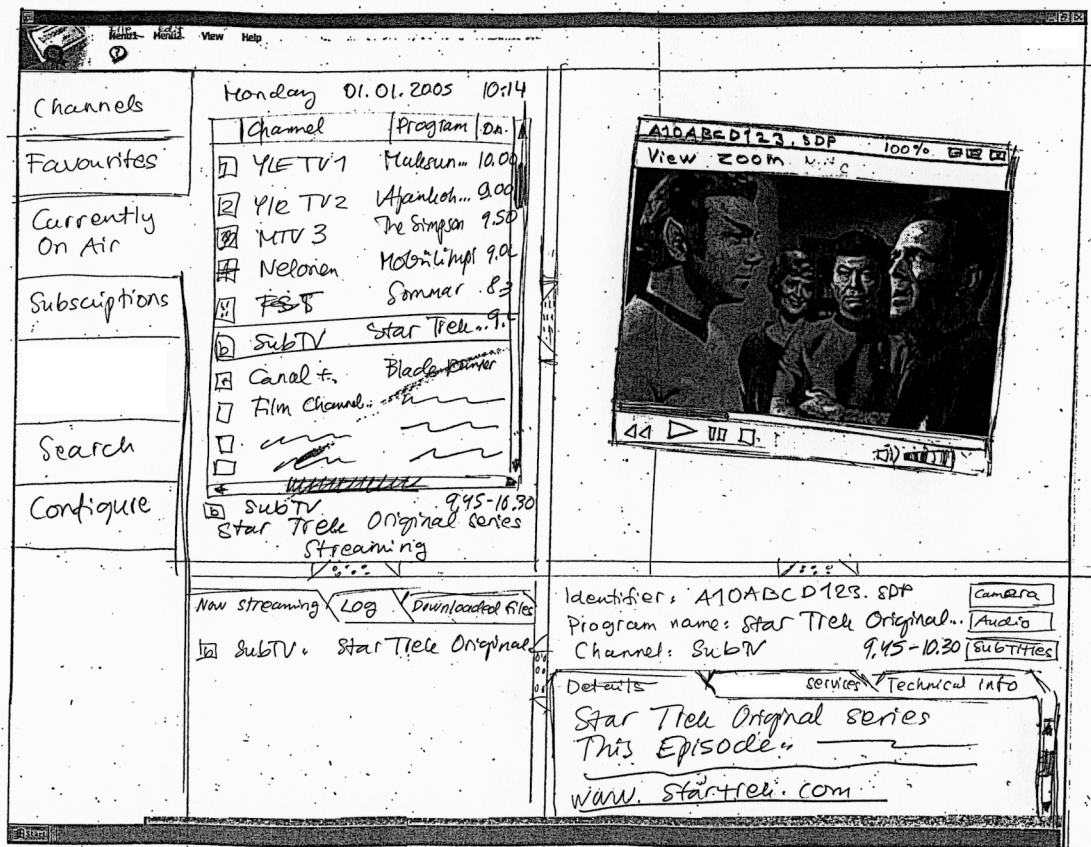 File Edit
Menu1 Menu2 View Help
?
Channels
Favourites
Currently
On Air
Subscriptions
Search
Configure
Monday 01.01.2005 10:14
Channel Program DA.
1 YLE TV1 10.00
2 Yle TV2 9.00
MTV 3 The Simpson 9.50
4 Nelonen
Sommar
SubTV Star Trek...
Canal +. Blade Runner
Film Channel..
SubTV 9.45-10.30
Star Trek Original series
Streaming
A10ABCD123.SDP 100%
View Zoom
Now streaming Log Downloaded Files
SubTV. Star Trek Original
Identifier: A10ABCD123.SDP Camera
Program name: Star Trek Original... Audio
Channel: SubTV 9.45-10.30 Subtitles
Details Services Technical info
Star Trek Original series
This Episode:
www.startrek.com
Start